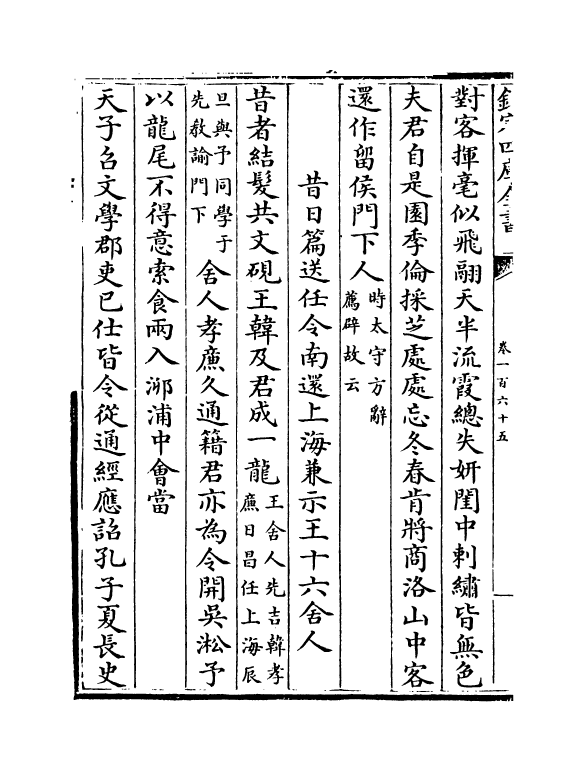 欽定四庫全書
卷一百六十五
對客揮毫似飛翮天半流霞總失妍閨中刺繡皆無色
夫君自是園季倫採芝處處忘冬春肯將商洛山中客
還作留侯門下人時太守方辭薦辟故云
昔日篇送任令南還上海兼示王十六舍人
昔者結髮共文硯王韓及君成一龍王舍人先吉韓孝廉日昌任上海辰
旦與予同學于先教諭門下舍人孝廉久通籍君亦為令開吳淞予
以龍尾不得意索食兩入泖浦中會當
天子召文學郡吏已仕皆令從通經應詔孔子夏長史